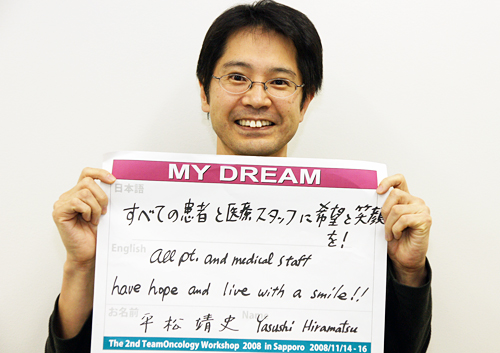 MY DREAM
日本語
すべての患者と医療スタッフに希望と笑顔
を!
English
All pt. and medical staff
have hope and live with a smile!!
お名前 Name
平松靖史 Yasushi Hiramatsu
The 2nd TeamOncology Workshop 2008 in Sapporo 2008/11/14-16